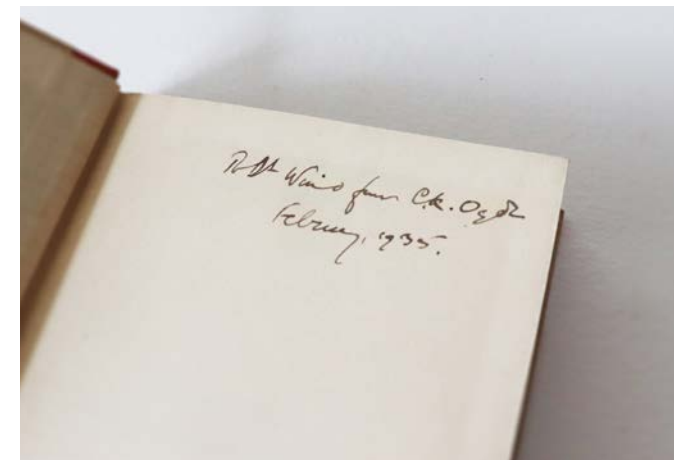 Wind from C.K. Ogden
February, 1935.